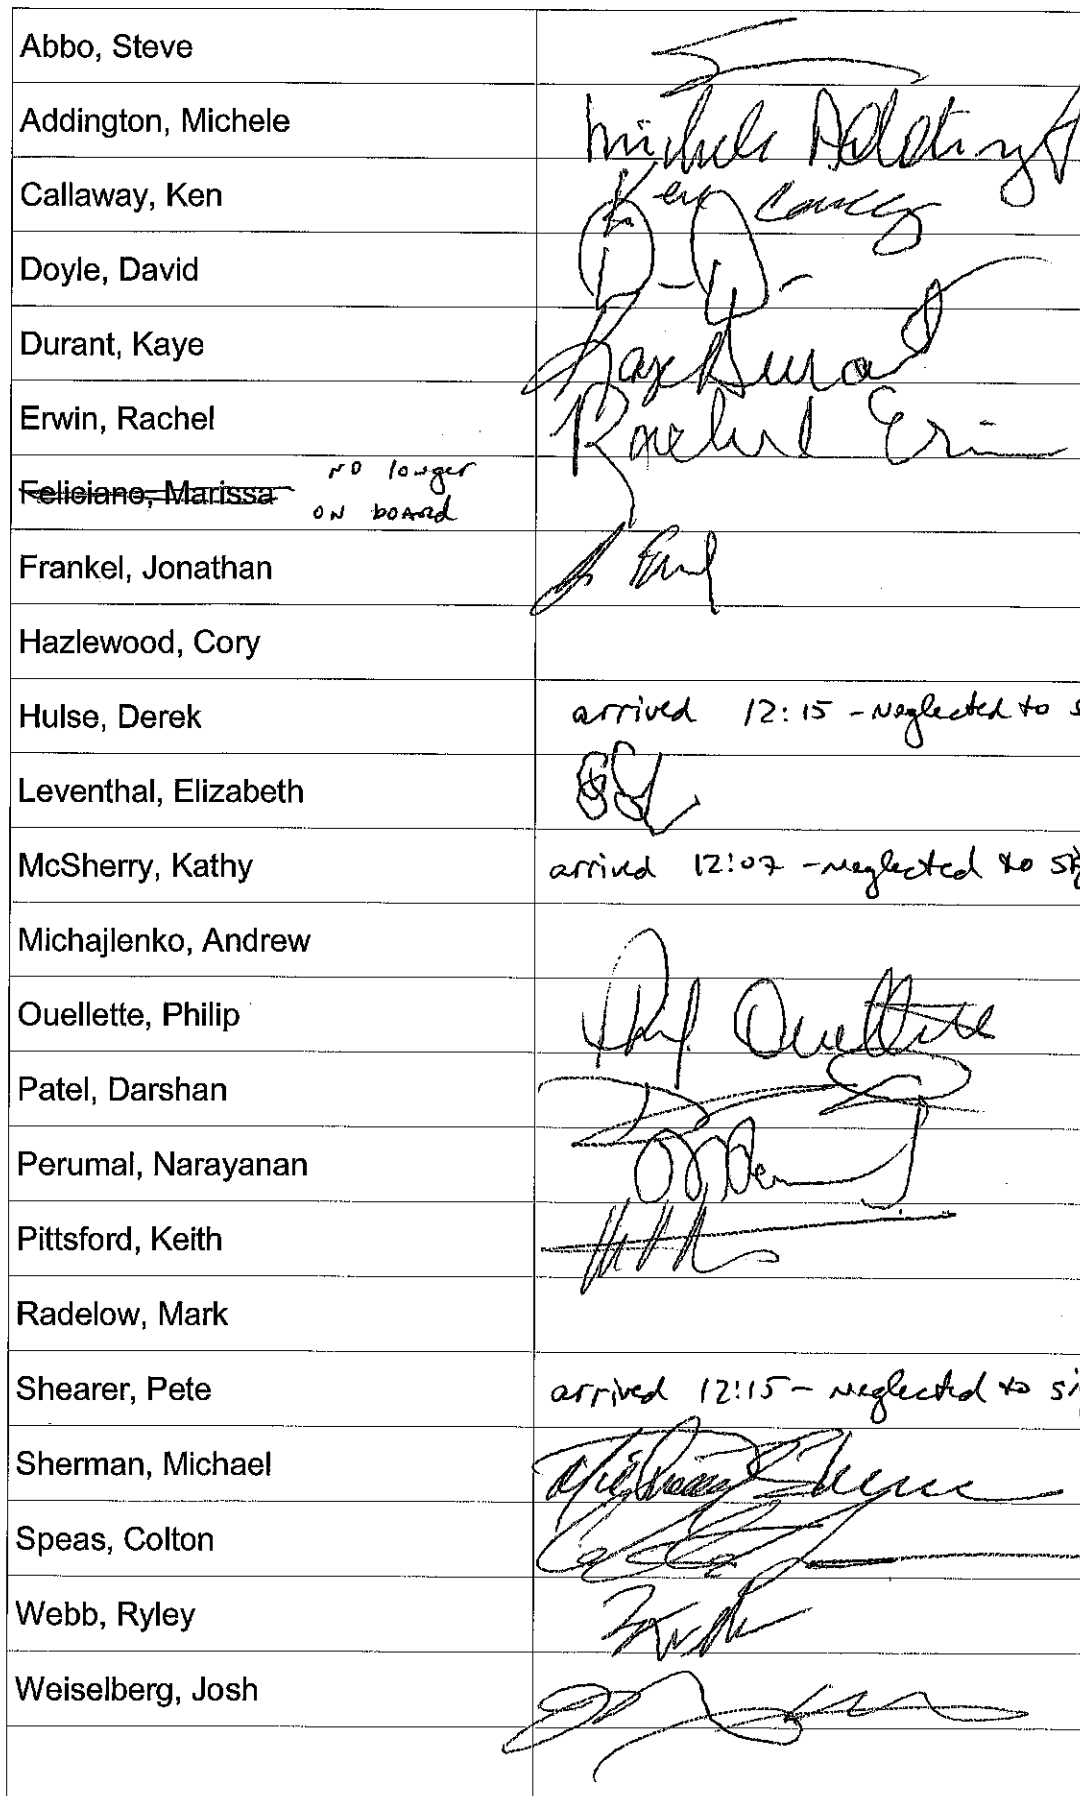 Abbo, Steve
Addington, Michele Michele Addingt
Callaway, Ken Ken
Doyle, David D-D-
Durant, Kaye Kaye Durant
Erwin, Rachel Rachel Erwin
Feliciano, Marissa NO longer
ON board
Frankel, Jonathan
Hazlewood, Cory
Hulse, Derek arrived 12:15 - Neglected to s
Leventhal, Elizabeth
McSherry, Kathy arrived 12:07 - neglected to sig
Michajlenko, Andrew
Ouellette, Philip Phil Ouellette
Patel, Darshan
Perumal, Narayanan
Pittsford, Keith
Radelow, Mark
Shearer, Pete arrived 12:15 - neglected to si
Sherman, Michael
Speas, Colton
Webb, Ryley
Weiselberg, Josh